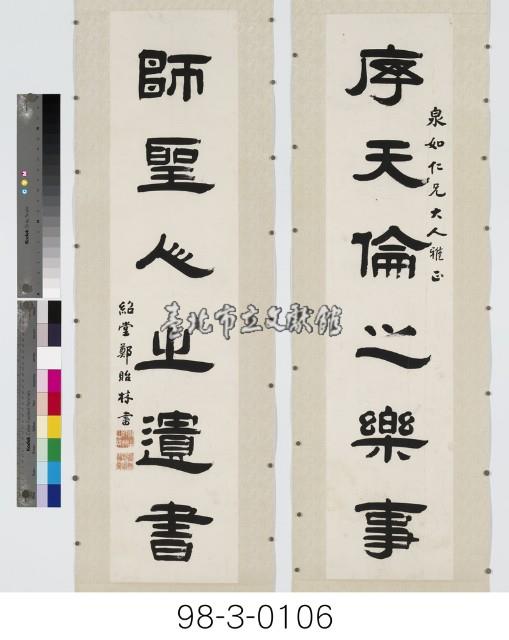 泉如仁兄大人雅正
序天倫之樂事
師聖人之遺書
紹堂鄭貽林書
臺北市立文獻館
98-3-0106